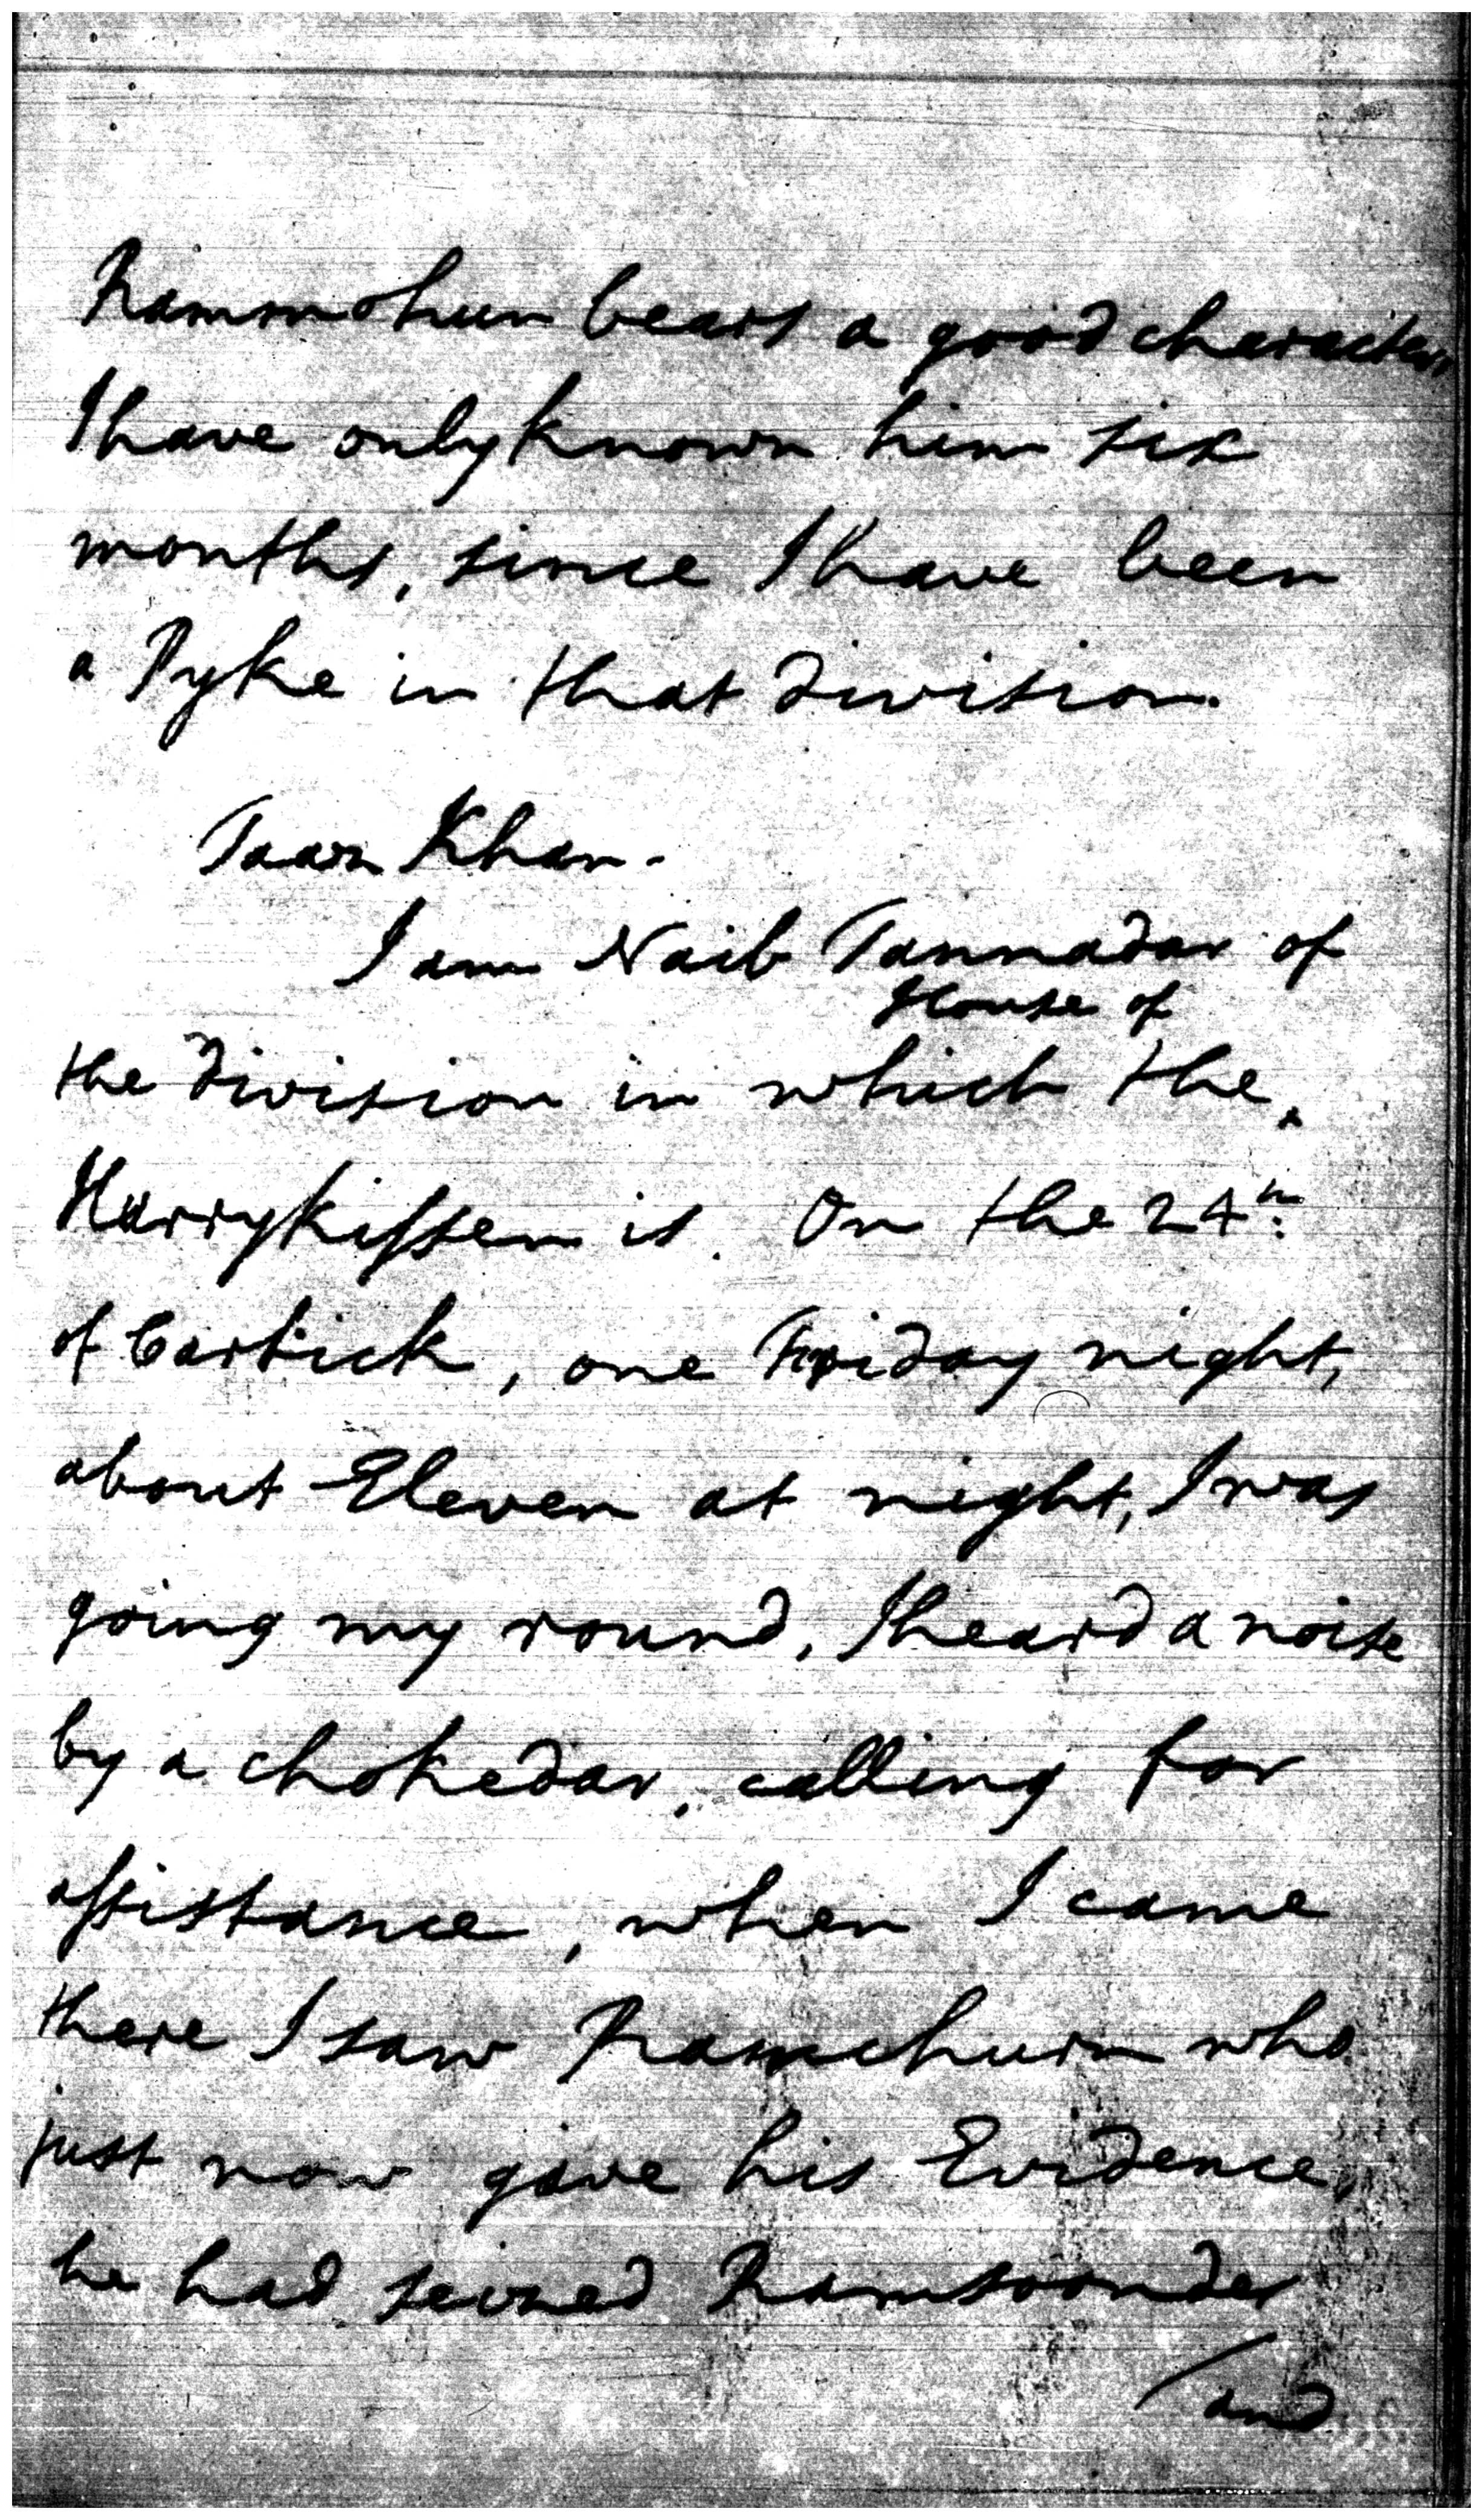 Rammohun bears a good character,
I have only known him six
months, since I have been
a Pyke in that division.
Taazn Khan.
I am Naib Tannadar of
House of
the division in which the ‸
Harrykissen is. On the 24th
of Cartick, one Friday night,
about Eleven at night, I was
going my round, I heard a noise
by a chokedar, calling for
assistance, when I came
there I saw Ramchurn who
just now gave his Evidence,
he had seized Ramsoonder
/and